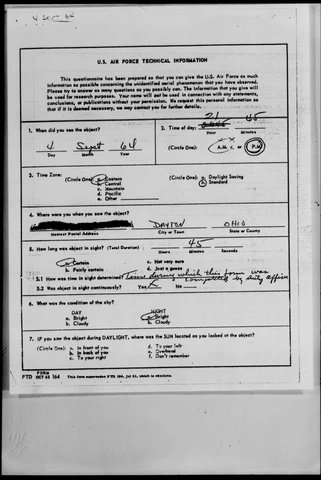 4 SEPT 64
U.S. AIR FORCE TECHNICAL INFORMATION
This questionnaire has been prepared so that you can give the U.S. Air Force as much
information as possible concerning the unidentified aerial phenomenon that you have observed.
Please try to answer as many questions as you possibly can. The information that you give will
be used for research purposes. Your name will not be used in connection with any statements,
conclusions, or publications without your permission. We request this personal information so
that if it is deemed necessary, we may contact you for further details.
1. When did you see the object?
4 Sept 64
Day Month Year
2. Time of day: 21 45
Hour Minutes
(Circle One): A.M. or P.M.
3. Time Zone:
(Circle One): a. Eastern
b. Central
c. Mountain
d. Pacific
e. Other
(Circle One): a. Daylight Saving
b. Standard
4. Where were you when you saw the object?
DAYTON OHIO
Nearest Postal Address City or Town State or County
5. How long was object in sight? (Total Duration) 45
Hours Minutes Seconds
a. Certain c. Not very sure
b. Fairly certain d. Just a guess
5.1 How was time in sight determined? Time during which this form was
completed by duty officer
5.2 Was object sight continuously? Yes X No
6. What was the condition of the sky?
DAY NIGHT
a. Bright a. Bright
b. Cloudy b. Cloudy
7. IF you saw the object during DAYLIGHT, where was the SUN located as you looked at the object?
(Circle One): a. In front of you d. To your left
b. In back of you e. Overhead
c. To your right f. Don't remember
FORM
FTD OCT 62 164 This form supersedes FTD 164, Jul 61, which is obsolete.